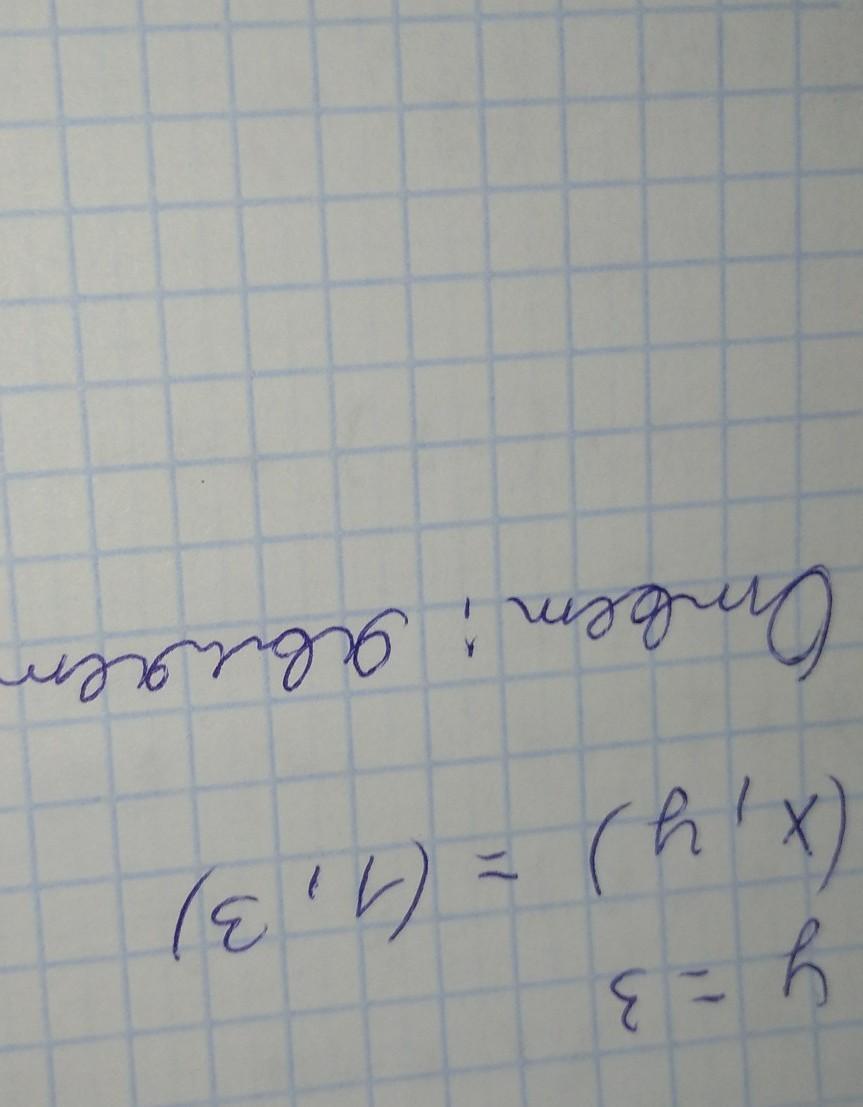 y = 3
(x, y) = (1, 3)
Ответ: являет